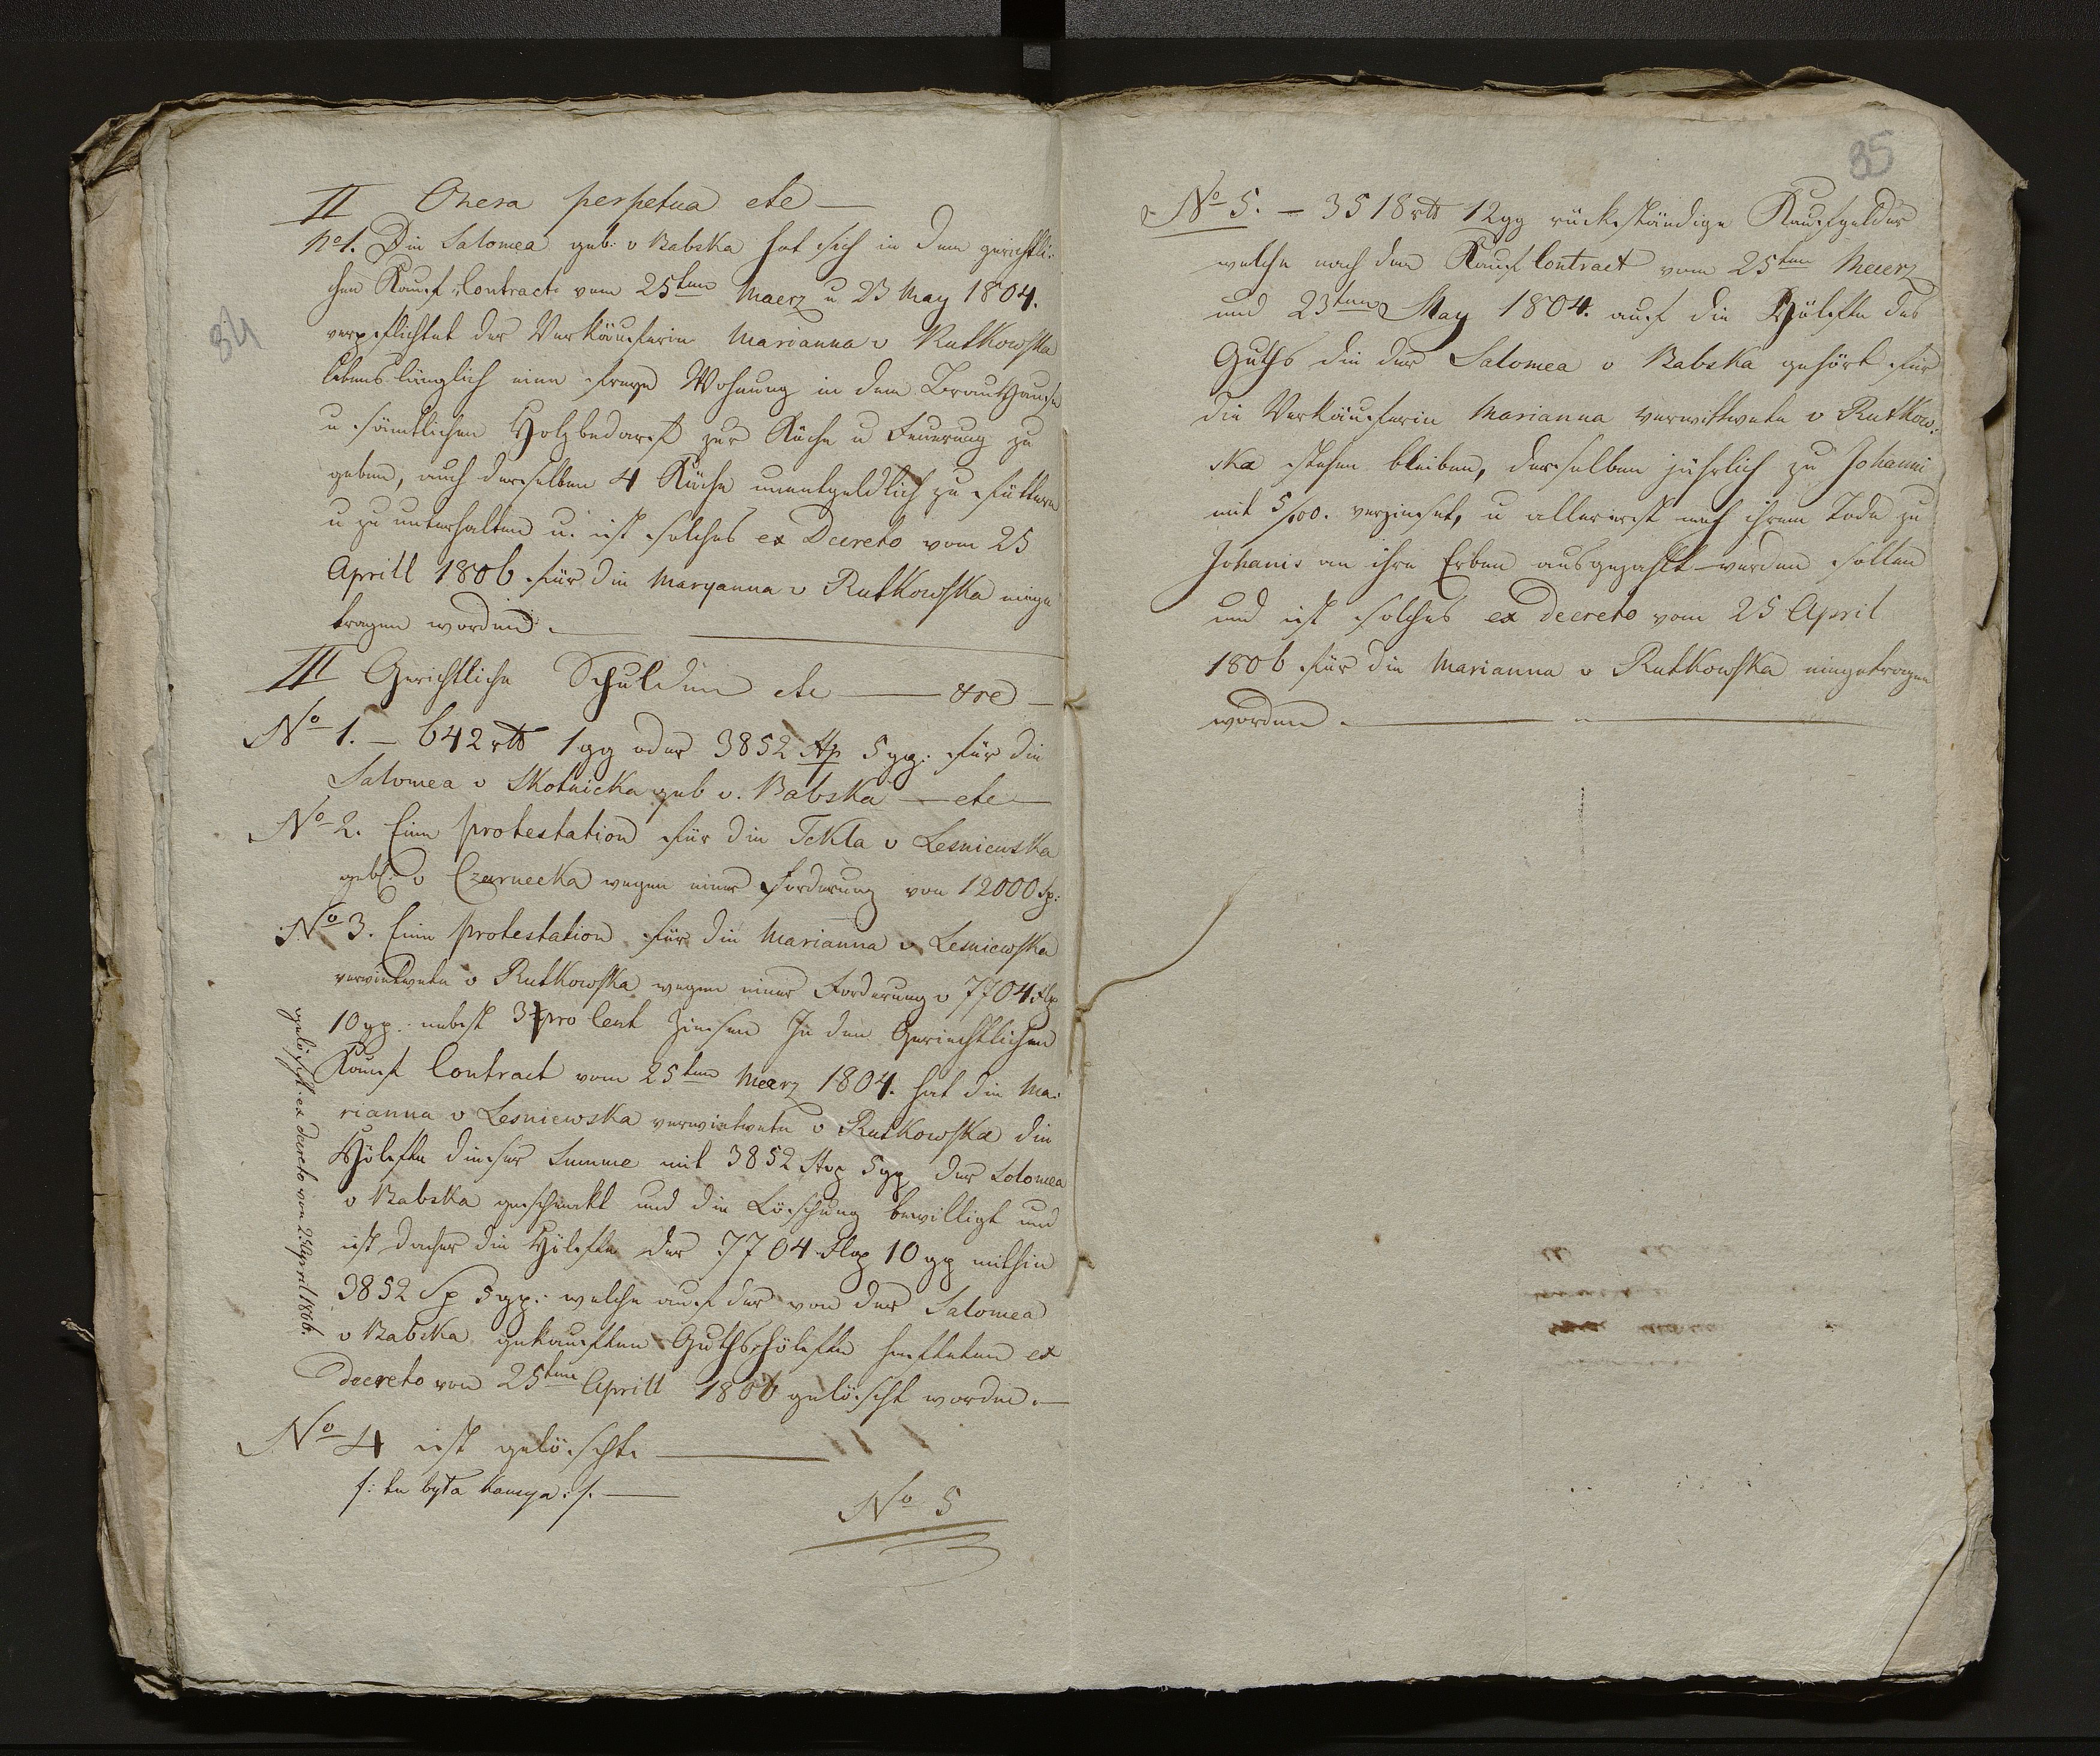 84
II Onera perpetua etc —
No 1. Die Salomea geb: v Babska hat sich in dem gerichtli-
chen Kauf Contract vom 25ten Maerz u 23 May 1804.
verpflichtet der Verkäuferin Marianna v Rutkowska
lebenslänglich eine freye Wohnung in dem Brauhause
u sämtlichen Holzbedarf zur Küche u Feuerung zu
geben, auch derselben 4 Kühe unentgeldlich zu füttern
u zu unterhalten u. ist solches ex Decreto vom 25
Aprill 1806 für die Maryanna v Rutkowska einge
tragen worden. —
III Gerichtliche Schulden etc —
No 1. — 642 rtt 1 gg oder 3852 flp 5 gg: für die
Salomea v Skotnicka geb v. Babska — etc —
No 2. Eine protestation für die Tekla v Lesniewska
geb: v Czarnecka wegen einer Forderung von 12000 fp:
No 3. Eine protestation für die Marianna v Lesniewska
verwietwete v Rutkowska wegen einer Forderung v 7704 flp
10 gp. nebst 3 pro Cent Ziensen In dem Geriechtlichen
Kauf Contract vom 25ten Maerz 1804. hat die Ma-
rianna v Lesniewska verwietwete v Rutkowska die
Hälfte dieser Summe mit 3852 flp 5 gp der Solomea
v Babska geschenkt und die Löschung bewilligt und
ist daher die Hälfte der 7704 Flp 10 gp mithin
3852 Fp 5 gp: welche auf der von der Salomea
v Babska gekauften Guthshälfte hafteten ex
decreto von 25ten Aprill 1806 gelöscht worden. —
No 4 ist gelöscht. —
/: tu była kawya :/. —
No 5
gelöscht ex decreto von 25 April 1806.
85
No 5. — 3518 rtt 12 gg rückständige Kaufgelder
welche nach dem Kauf Contract vom 25ten Maerz
und 23ten May 1804. auf die Hälfte des
Guths die der Salomea v Babska gehört für
die Verkäuferin Marianna verwittwete v Rutkow-
ska stehen bleiben, derselben jährlich zu Johanni
mit 5/100. verzinset, u allererst nach ihrem Tode zu
Johanis an ihre Erben ausgezahlt werden sollen
und ist solches ex decreto vom 25 April
1806 für die Marianna v Rutkowska eingetragen
worden. —